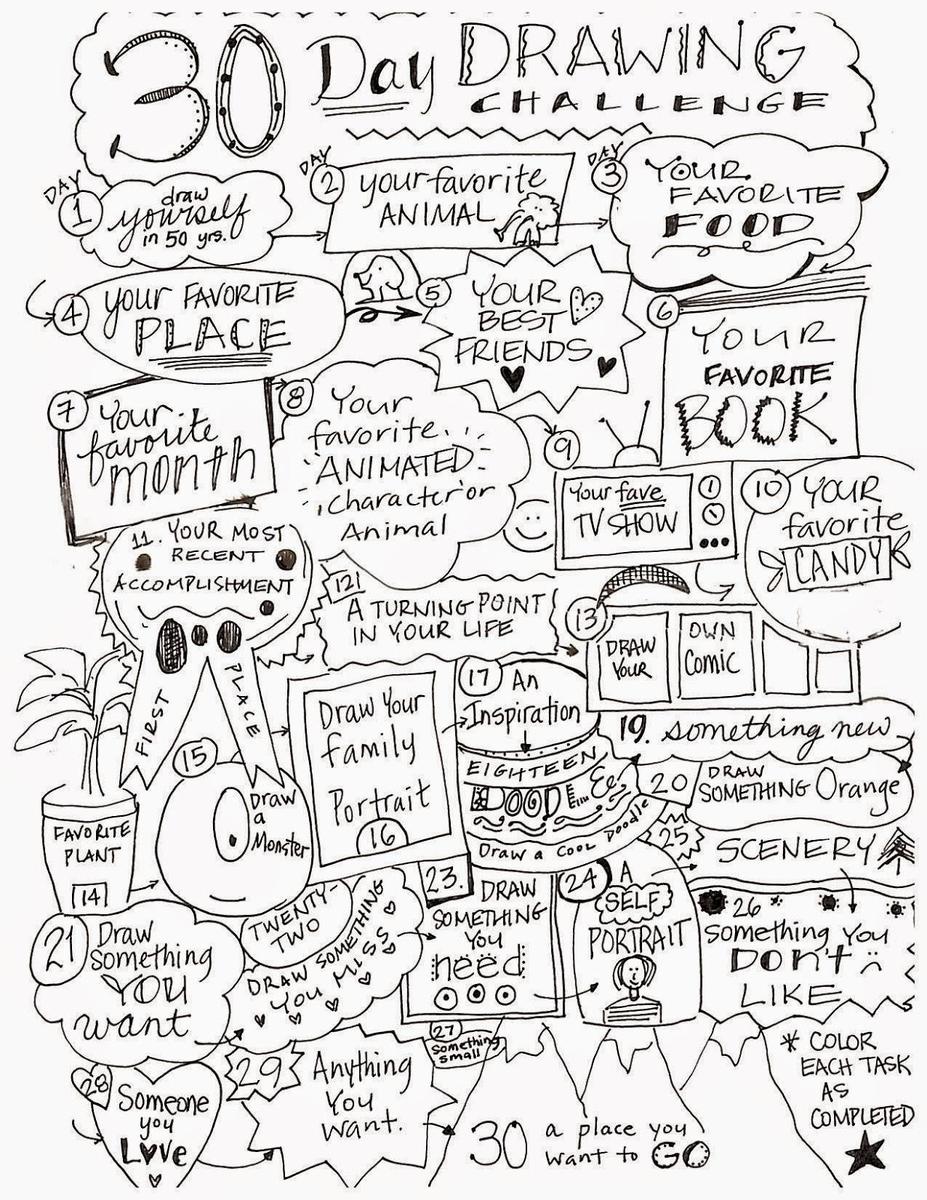 30 Day DRAWING
CHALLENGE
DAY
1
draw
yourself
in 50 yrs.
DAY
2
your favorite
ANIMAL
DAY
3
YOUR
FAVORITE
FOOD
4
your FAVORITE
PLACE
5
YOUR
BEST
FRIENDS
6
YOUR
FAVORITE
BOOK
7
Your
favorite
month
8
Your
favorite
ANIMATED
character or
Animal
9
Your fave
TV SHOW
10
YOUR
favorite
CANDY
11. YOUR MOST
RECENT
ACCOMPLISHMENT
FIRST
PLACE
12
A TURNING POINT
IN YOUR LIFE
13
DRAW
YOUR
OWN
Comic
FAVORITE
PLANT
14
15
Draw
a
Monster
Draw Your
family
Portrait
16
17
An
Inspiration
EIGHTEEN
DOODLE
Draw a COOL Doodle
19. something new
20
DRAW
SOMETHING Orange
21
Draw
Something
YOU
want
TWENTY-
TWO
DRAW SOMETHING
YOU MISS
23.
DRAW
SOMETHING
YOU
need
24
A
SELF
PORTRAIT
25
SCENERY
26
Something You
DON't
LIKE
27
Something
small
28
Someone
you
Love
29
Anything
You
want.
30 a place you
want to GO
* COLOR
EACH TASK
AS
COMPLETED